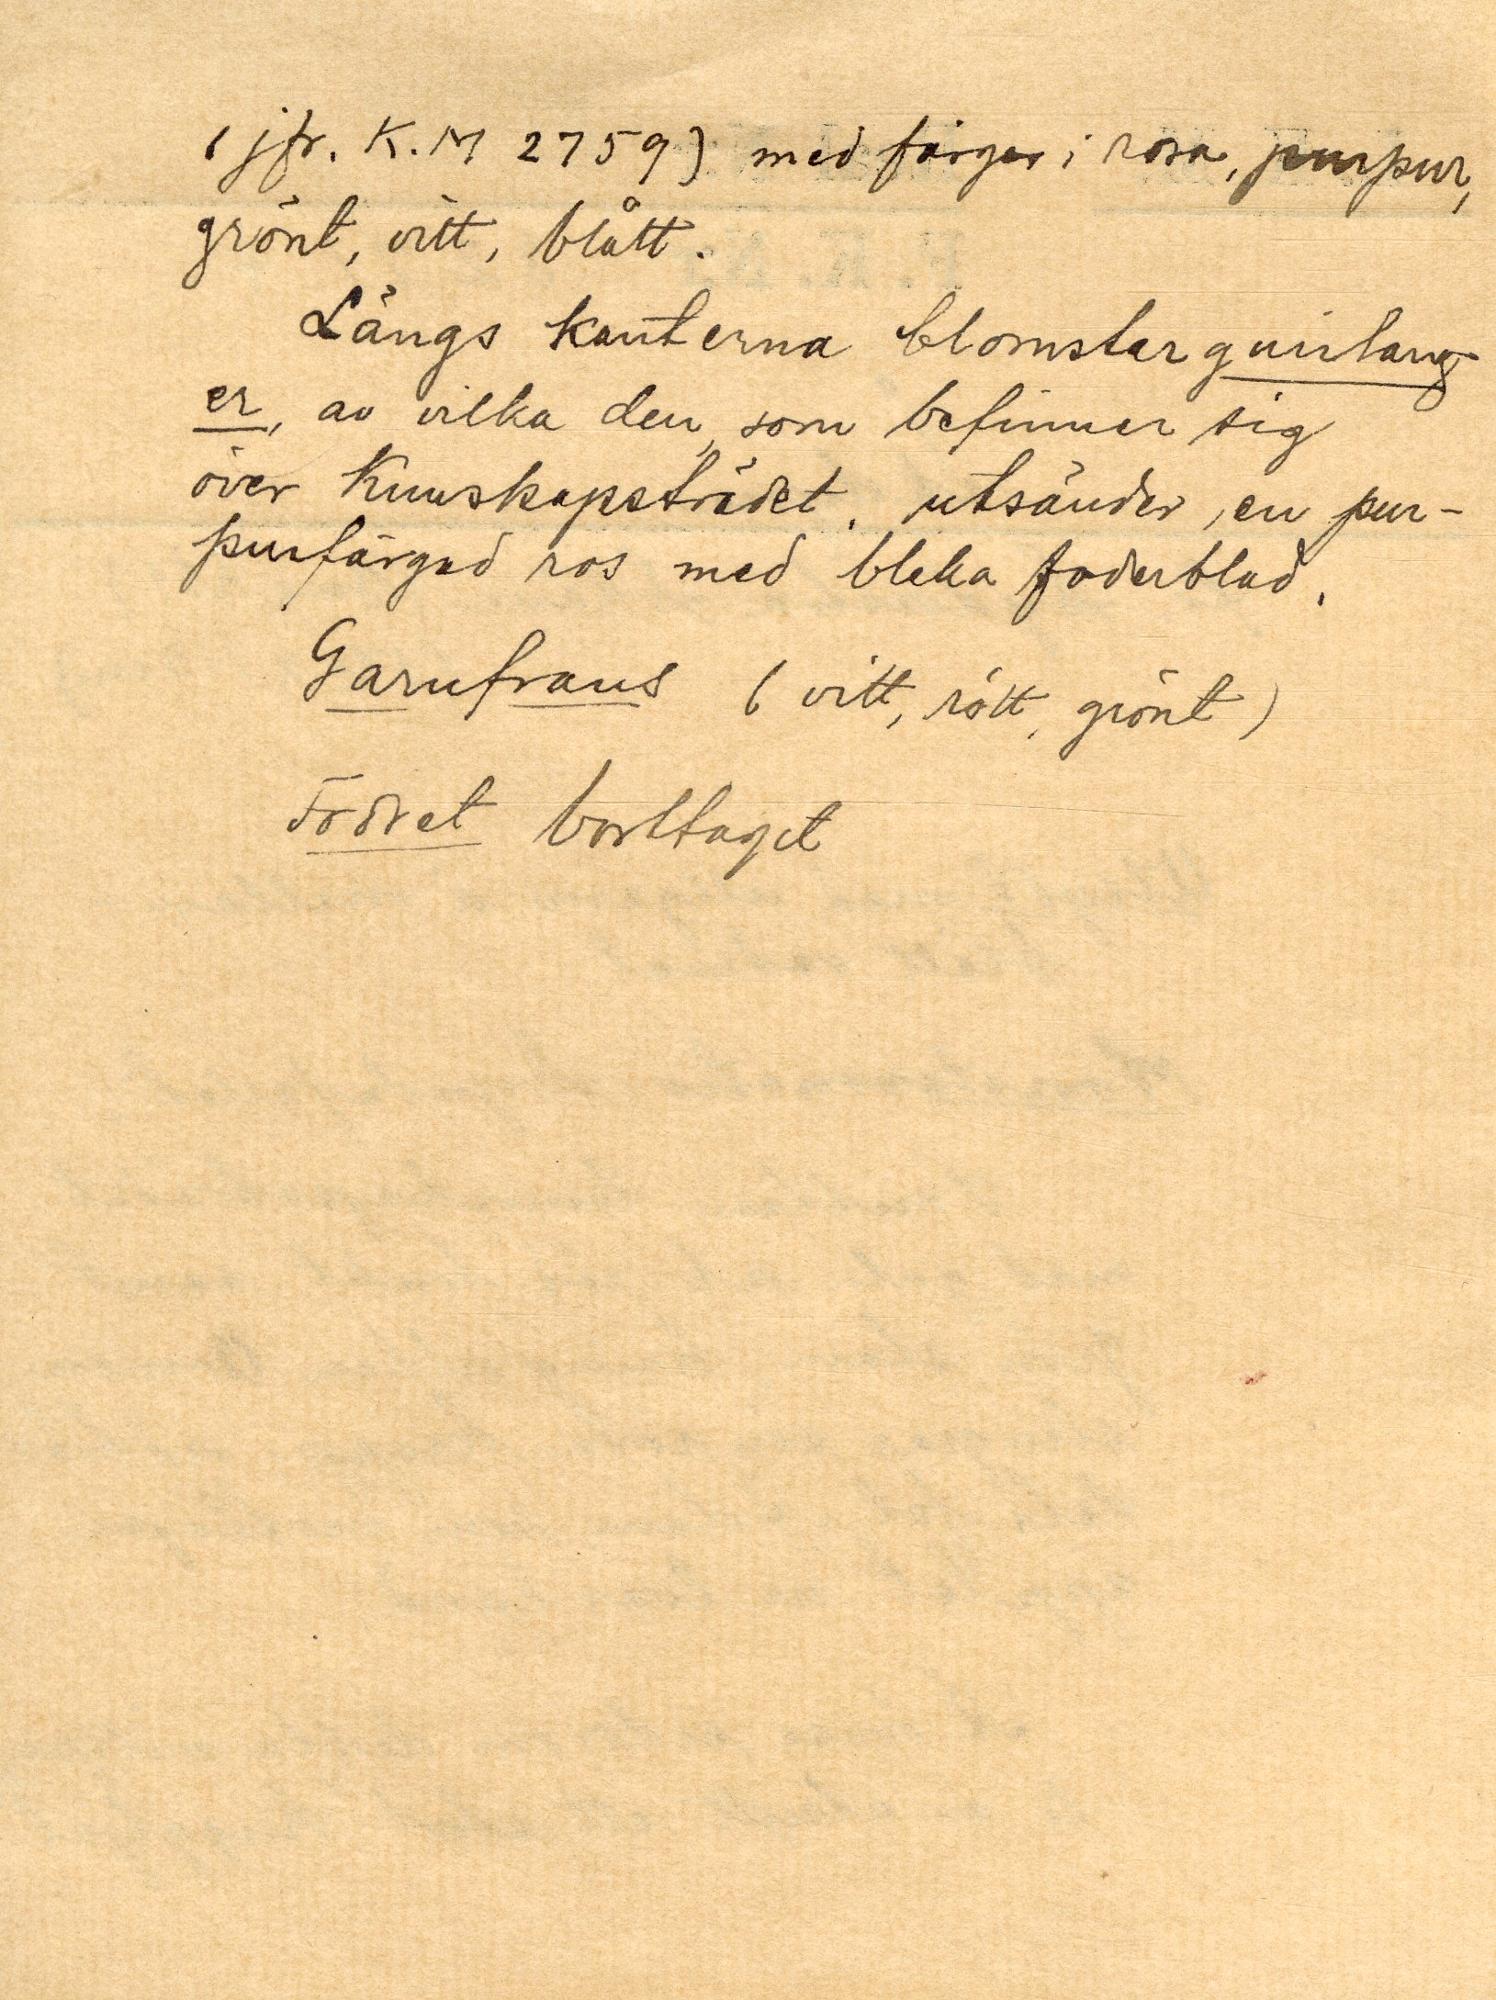 (jfr. K.M 2759) med färger i rosa, purpur,
grönt, vitt, blått.
Längs kanterna blomsterguirlang-
er, av vilka den, som befinner sig
över Kunskapsträdet, utsänder, en pur-
purfärgad ros med bleka foderblad.
Garnfrans (vitt, rött, grönt)
Fodret borttaget